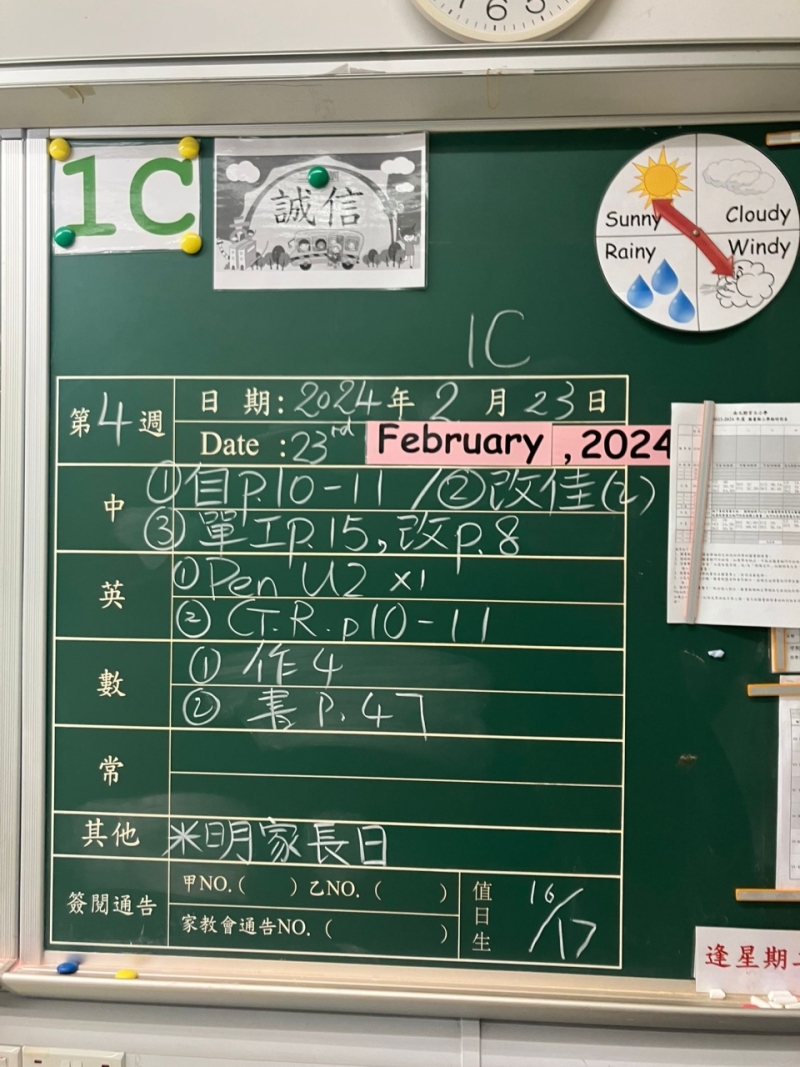 6 5
1C
誠信
Sunny
Cloudy
Rainy
Windy
1C
第4週
日 期: 2024年 2 月 23日
Date :23rd February , 2024
中
①自p.10-11 /②改佳(2)
③單工p.15,改p.8
英
①Pen U2 x1
② G.R. p10-11
數
① 作4
② 書 P. 47
常
其他
※明家長日
簽閱通告
甲NO.( ) 乙NO. ( )
家教會通告NO. ( )
值日生
16/17
逢星期二